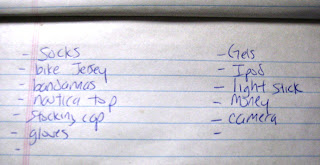 - Socks
- bike Jersey
- bandannas
- nautica top
- stocking cap
- gloves
-
- Gels
- Ipod
- light stick
- Money
- camera
-